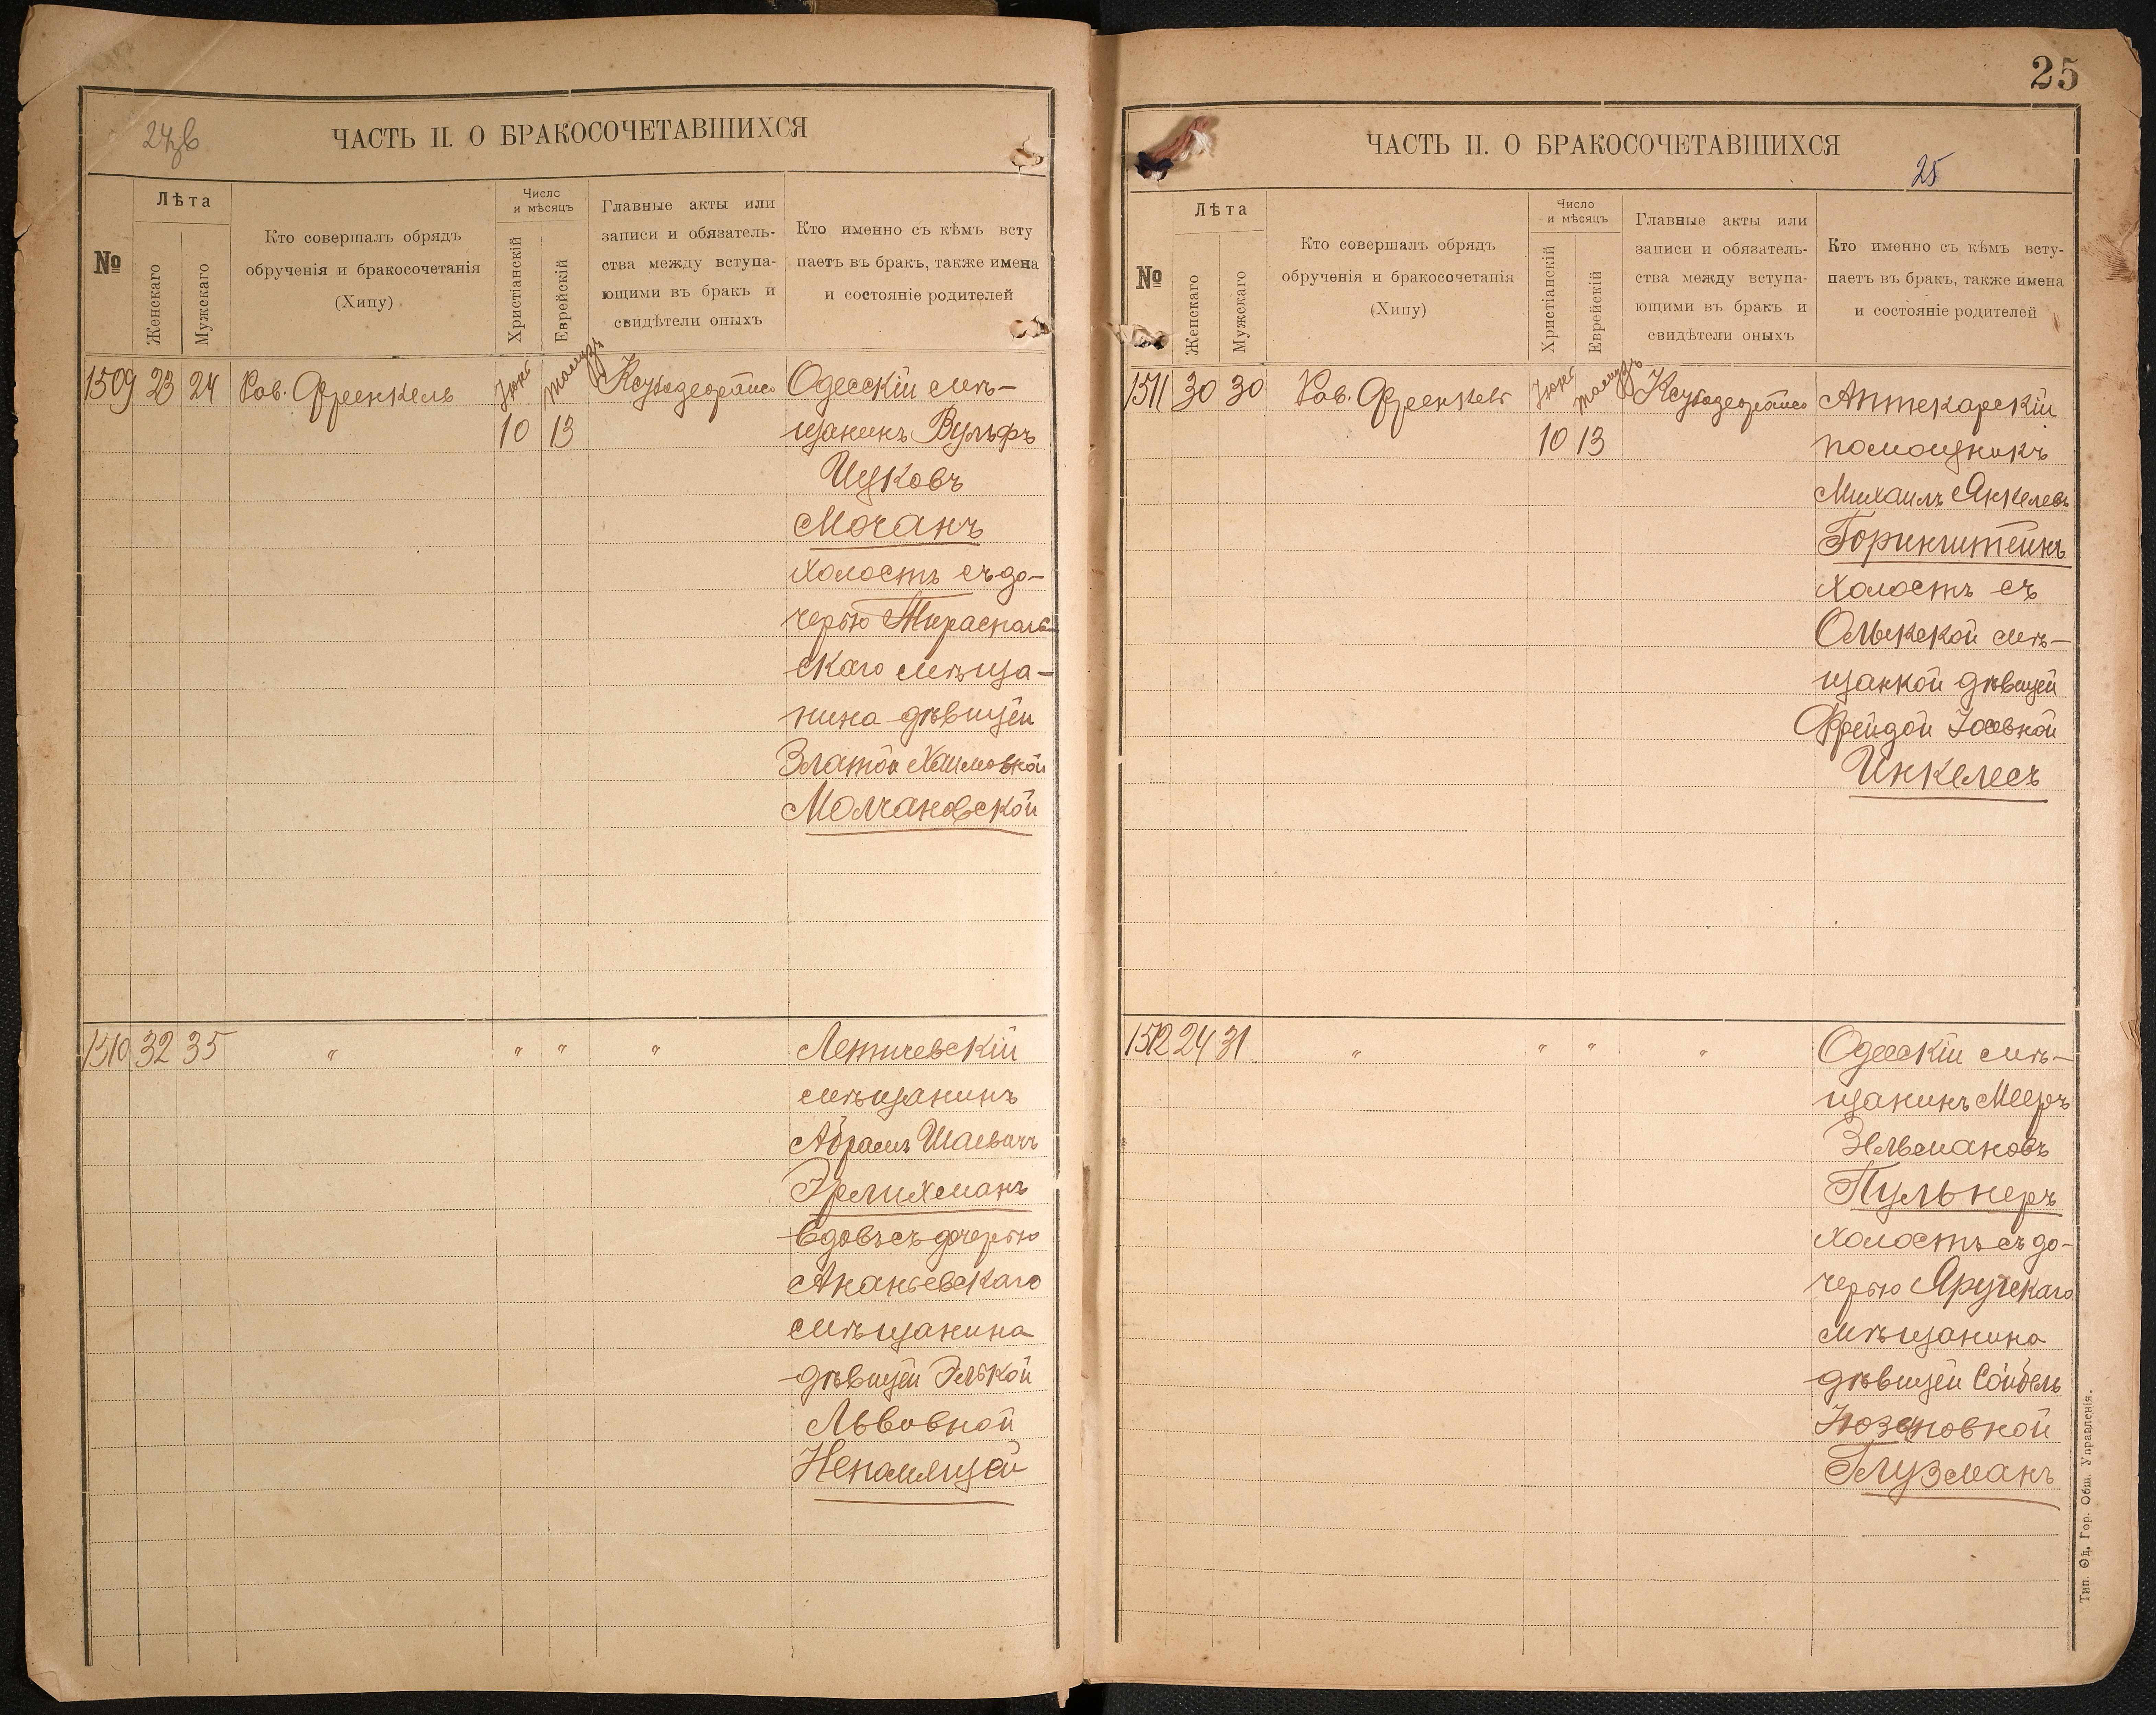 24 об
ЧАСТЬ II. О БРАКОСОЧЕТАВШИХСЯ
№
Лѣта
Женскаго
Мужскаго
Кто совершалъ обрядъ
обрученія и бракосочетанія
(Хипу)
Число
и мѣсяцъ
Христіанскій
Еврейскій
Главные акты или
записи и обязатель-
ства между вступа-
ющими въ бракъ и
свидѣтели оныхъ
Кто именно съ кѣмъ всту
паетъ въ бракъ, также имена
и состояніе родителей
1509 23 24 Рав. Френкель
10 13
Одесскій мѣ-
щанинъ Вульфъ
Ицковъ
Мочанъ
холостъ съ до-
черью Тираспаль-
скаго мѣща-
нина дѣвицей
Златой Хаимовной
Молчановской
1510 32 35 " " " " Летичевскій
мѣщанинъ
Абрамъ Шаевичъ
Эрлихманъ
вдовъ съ дочерью
Ананьевскаго
мѣщанина
дѣвицей Элькой
Львовной
Непомлящей
25
ЧАСТЬ II. О БРАКОСОЧЕТАВШИХСЯ
25
№
Лѣта
Женскаго
Мужскаго
Кто совершалъ обрядъ
обрученія и бракосочетанія
(Хипу)
Число
и мѣсяцъ
Христіанскій
Еврейскій
Главные акты или
записи и обязатель-
ства между вступа-
ющими въ бракъ и
свидѣтели оныхъ
Кто именно съ кѣмъ всту-
паетъ въ бракъ, также имена
и состояніе родителей
1511 30 30 Рав. Френкель
10 13
Аптекарскій
помощникъ
Михаилъ Янкелевъ
Горинштейнъ
холостъ съ
Олыкской мѣ-
щанкой дѣвицей
Фрейдой Іосевной
Инкелесъ
1512 24 31 " " " " Одесскій мѣ-
щанинъ Мееръ
Зельмановъ
Пульнеръ
холостъ съ до-
черью Яругскаго
мѣщанина
дѣвицей Сойбель
Глузманъ
Тип. Од. Гор. Общ. Управленія.